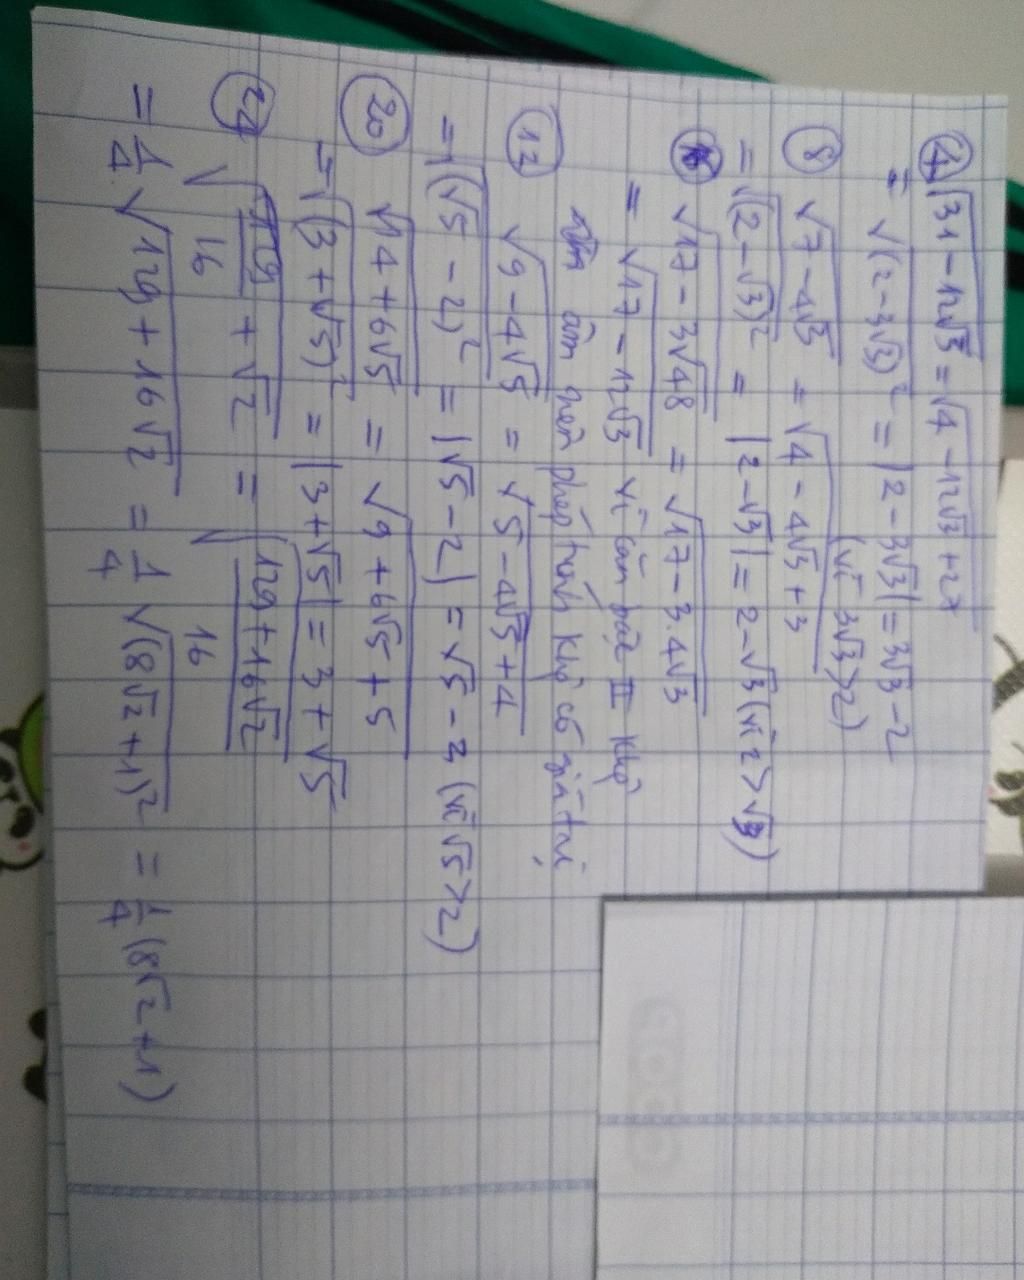 ④ √(31 - 12√3) = √(4 - 12√3 + 27)
= √((2 - 3√3)²) = |2 - 3√3| = 3√3 - 2
(vì 3√3 > 2)
⑧ √(7 - 4√3) = √(4 - 4√3 + 3)
= √((2 - √3)²) = |2 - √3| = 2 - √3 (vì 2 > √3)
√(17 - 3√48) = √(17 - 3.4√3)
= √(17 - 12√3) vì căn bậc II khô
âm nên phép tính khô có tại
⑫ √(9 - 4√5) = √(5 - 4√5 + 4)
= √((√5 - 2)²) = |√5 - 2| = √5 - 2 (vì √5 > 2)
⑳ √(14 + 6√5) = √(9 + 6√5 + 5)
= √((3 + √5)²) = |3 + √5| = 3 + √5
㉔ √(129/16 + √2) = √((129 + 16√2)/16)
= 1/4 √(129 + 16√2) = 1/4 √((8√2 + 1)²) = 1/4 (8√2 + 1)